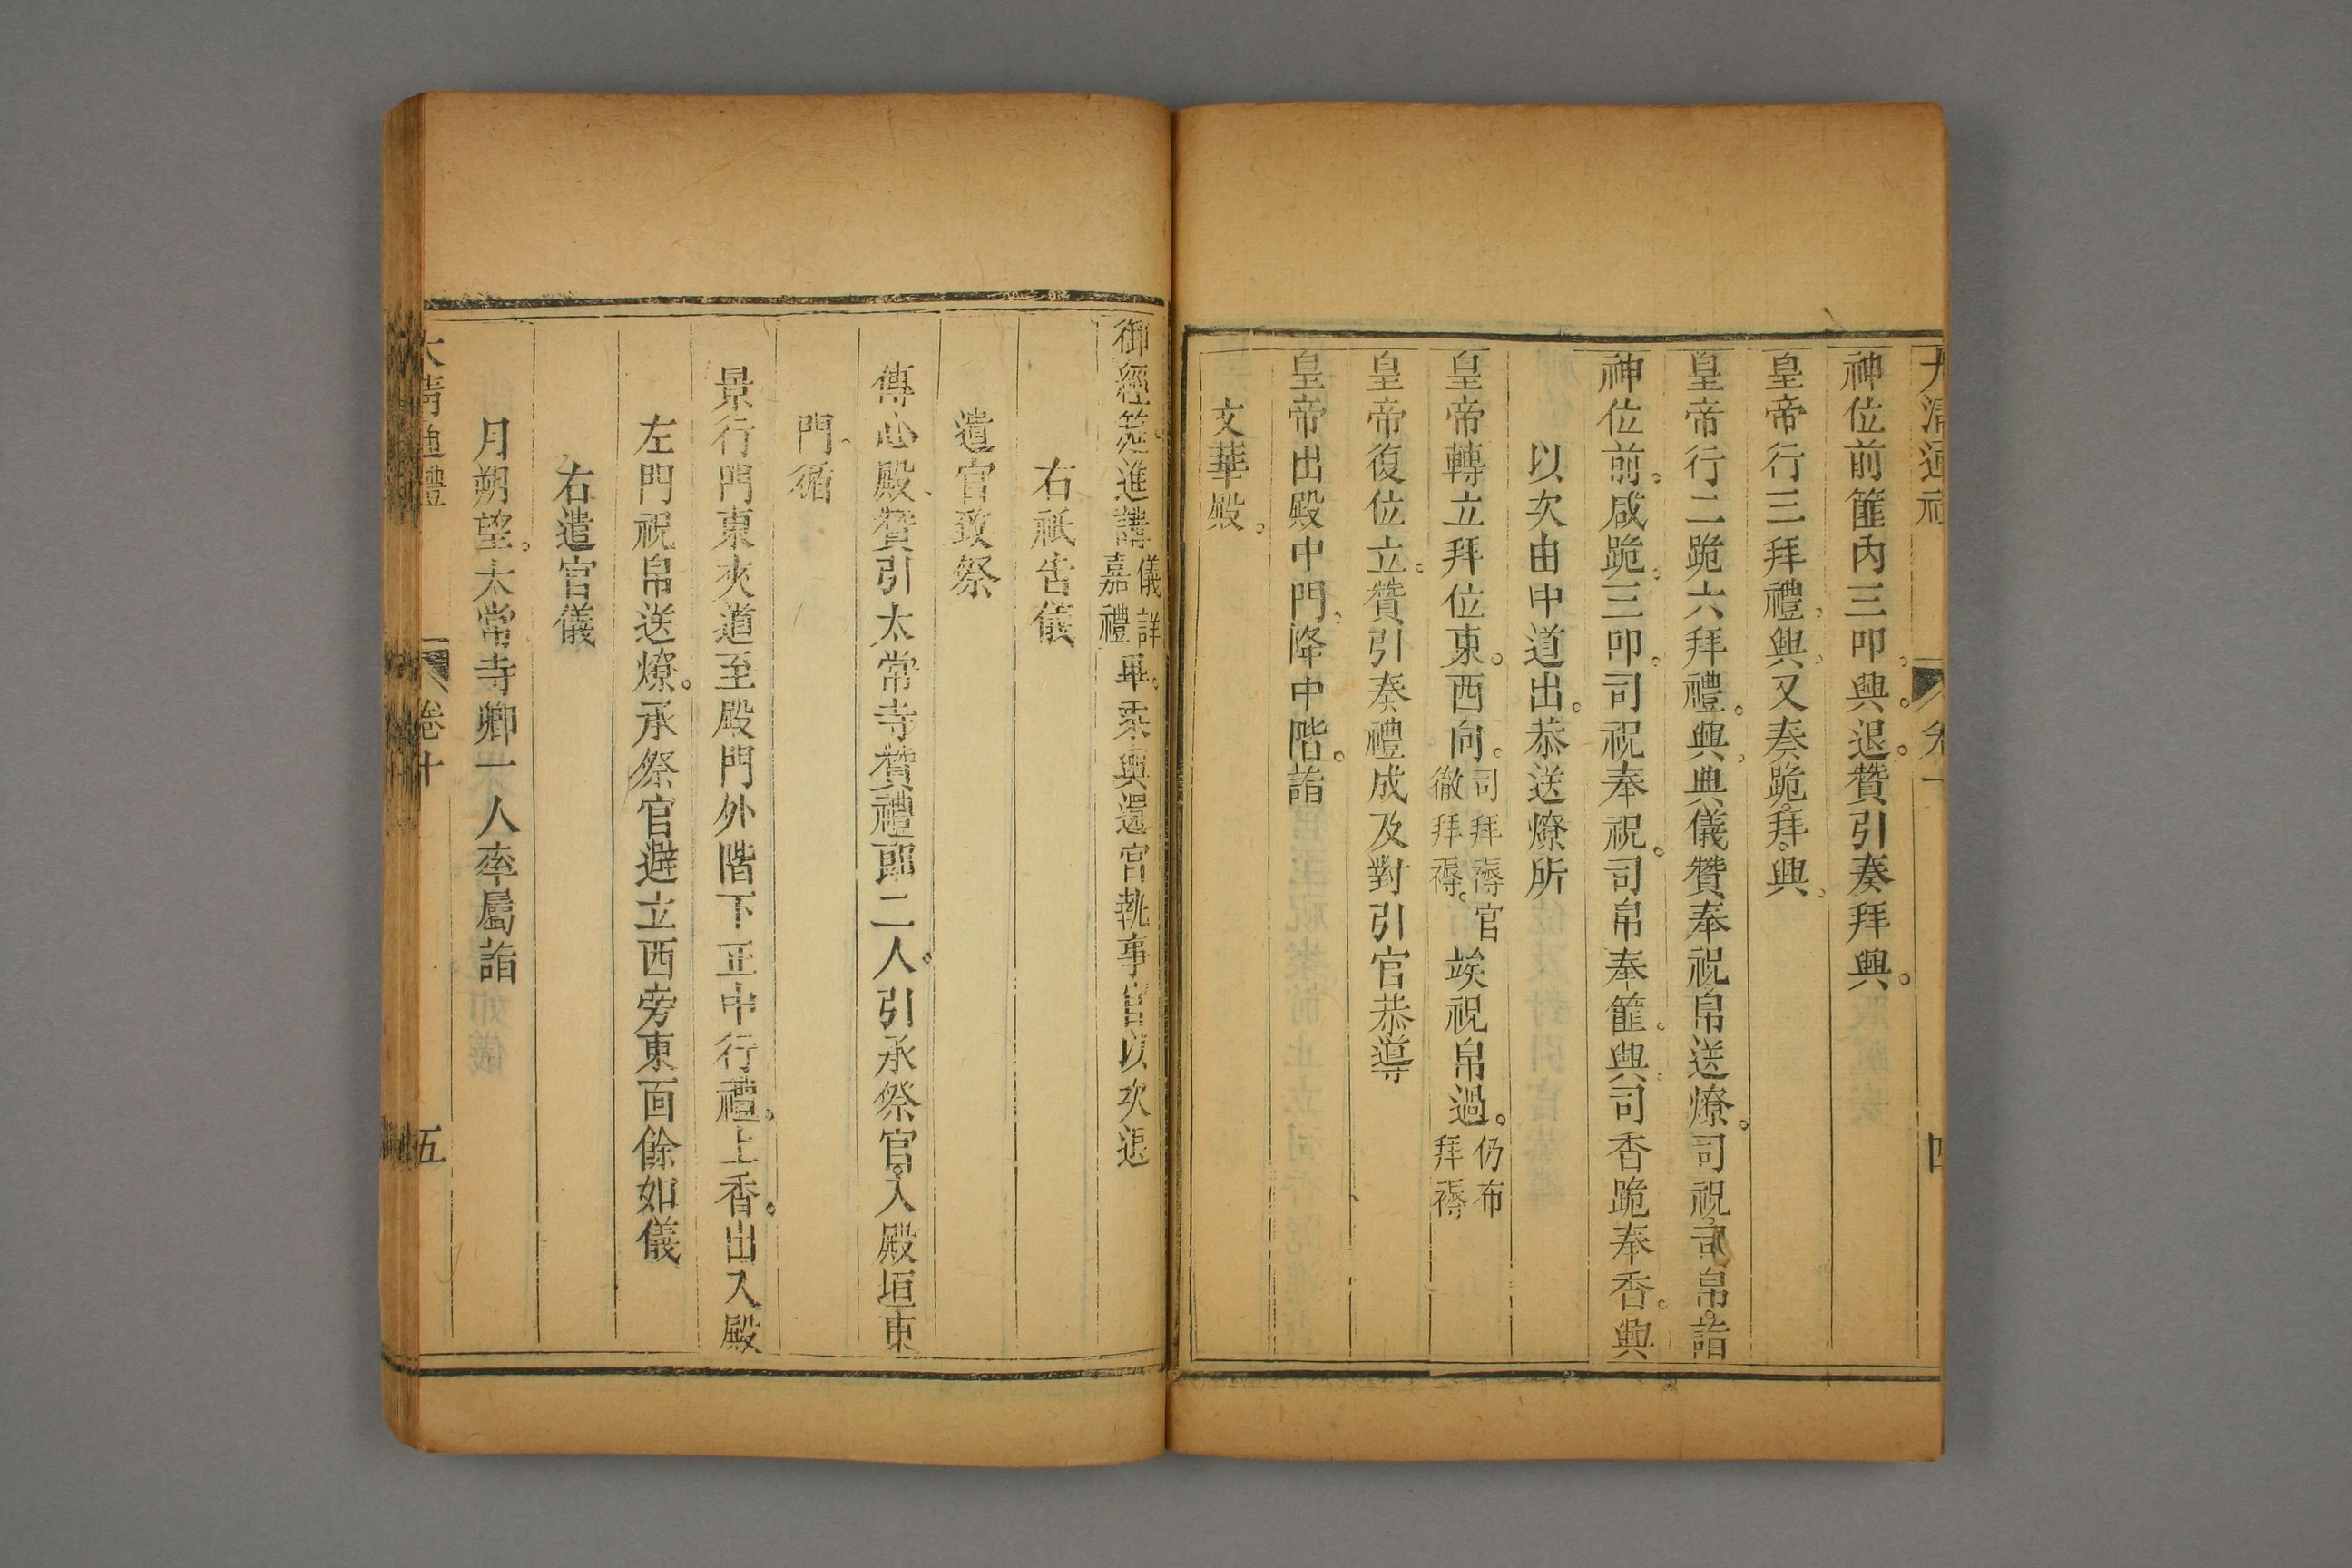 大清通禮　卷十　四
神位前篚內三叩。興。退。贊引奏拜興。
皇帝行三拜禮。興。又奏跪。拜。興。
皇帝行二跪六拜禮。興。典儀贊奉祝帛送燎。司祝司帛詣
神位前。咸跪。三叩。司祝奉祝。司帛奉篚。興。司香跪奉香。興
以次由中道出。恭送燎所
皇帝轉立拜位東。西向。司拜褥官徹拜褥。竢祝帛過。仍布拜褥
皇帝復位立。贊引奏禮成及對引官恭導
皇帝出殿中門。降中階。詣
文華殿。
御經筵。進講儀詳嘉禮畢。乘輿還宮執事官以次退
右祇告儀
遣官致祭
傳心殿、贊引太常寺贊禮郎二人。引承祭官。入殿垣東
門、循
景行門東夾道至殿門外階下正中行禮。上香。出入殿
左門祝帛送燎。承祭官避立西旁東面餘如儀
右遣官儀
月朔望。太常寺卿一人率屬詣
大清通禮　卷十　五